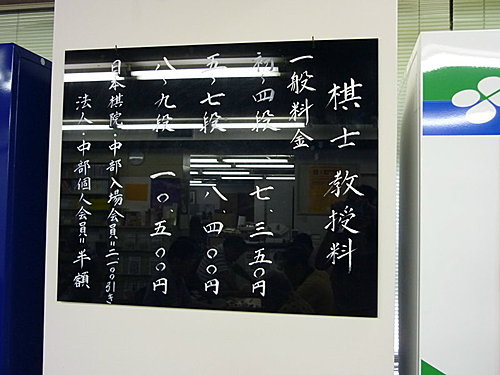 棋士教授料
一般料金
初～四段 七、三五〇円
五～七段 八、四〇〇円
八～九段 一〇、五〇〇円
日本棋院・中部入場会員=二一〇〇引き
法人・中部個人会員=半額